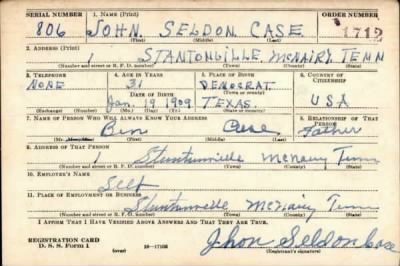 SERIAL NUMBER 1. NAME (Print) ORDER NUMBER
806 JOHN SELDON CASE 1712
(First) (Middle) (Last)
2. ADDRESS (Print)
1 STANTONVILLE MCNAIRY TENN
(Number and street or R. F. D. number) (Town) (County) (State)
3. TELEPHONE 4. AGE IN YEARS 5. PLACE OF BIRTH 6. COUNTRY OF CITIZENSHIP
NONE 31 DEMOCRAT
DATE OF BIRTH (Town or county)
Jan. 19 1909 TEXAS USA
(Exchange) (Number) (Mo.) (Day) (Yr.) (State or country)
7. NAME OF PERSON WHO WILL ALWAYS KNOW YOUR ADDRESS 8. RELATIONSHIP OF THAT PERSON
Ben Case Father
(First) (Middle) (Last)
9. ADDRESS OF THAT PERSON
1 Stuntunville McNairy Tenn
(Number and street or R. F. D. number) (Town) (County) (State)
10. EMPLOYER'S NAME
Self
11. PLACE OF EMPLOYMENT OR BUSINESS
Stuntunville McNairy Tenn
(Number and street or R. F. D. number) (Town) (County) (State)
I AFFIRM THAT I HAVE VERIFIED ABOVE ANSWERS AND THAT THEY ARE TRUE.
REGISTRATION CARD Jhon Seldon Case
D. S. S. Form 1 (over) 16-17105 (Registrant's signature)